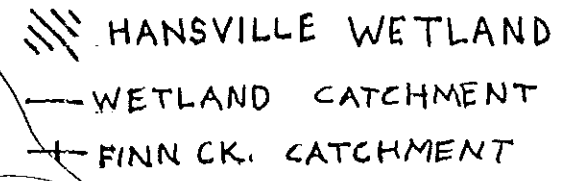 HANSVILLE WETLAND
WETLAND CATCHMENT
FINN CK. CATCHMENT